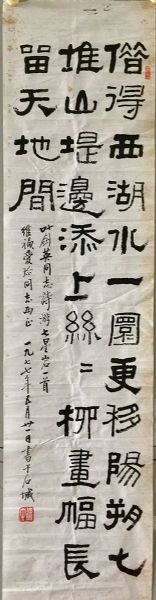 借得西湖水一圜更移陽朔七
堆山堤邊添上絲〻柳畫幅長
留天地間
叶剑英同志詩游七星岩一首
維禎愛珍同志两正 一九七七年五月廿一日書于石城